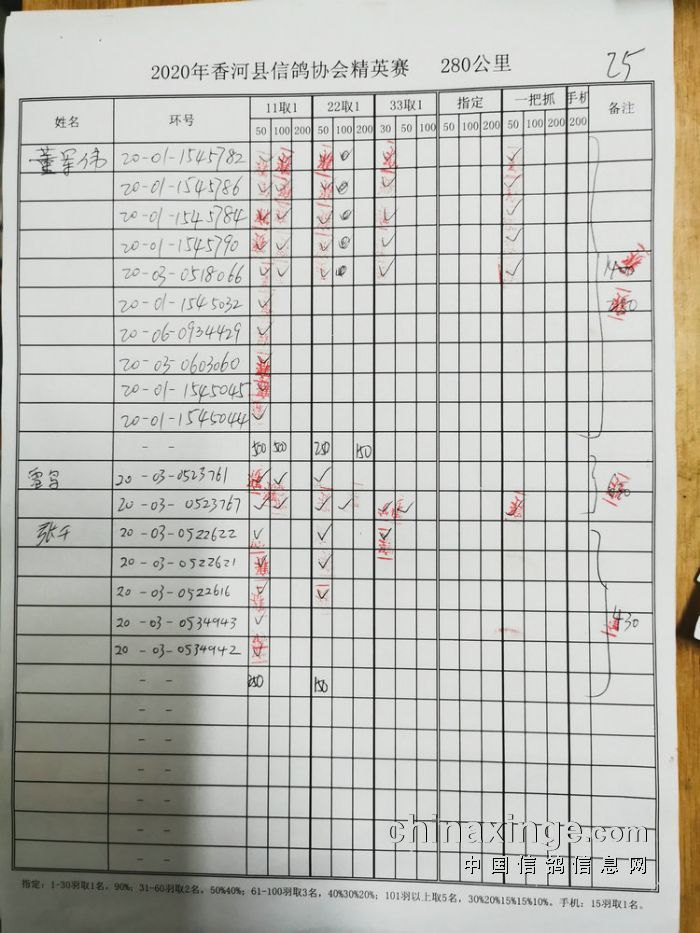 2020年香河县信鸽协会精英赛 280公里
25
姓名 环号 11取1 22取1 33取1 指定 一把抓 手机 备注
50 100 200 50 100 200 30 50 100 50 100 200 50 100 200 200
董军伟 20-01-1545782 ✓ ✓ ✓ ✓ ✓
20-01-1545786 ✓ ✓ ✓ ✓ ✓
20-01-1545784 ✓ ✓ ✓ ✓ ✓
20-01-1545790 ✓ ✓ ✓ ✓ ✓
20-03-0518066 ✓ ✓ ✓ ✓ ✓
20-01-1545032 ✓
20-06-0934429 ✓
20-03-0603060 ✓
20-01-1545045 ✓
20-01-1545044 ✓
- - 500 500 250 150
20-03-0523761 ✓ ✓ ✓
20-03-0523767 ✓ ✓ ✓ ✓ ✓ ✓ ✓
张午 20-03-0522622 ✓ ✓ ✓
20-03-0522621 ✓ ✓
20-03-0522616 ✓ ✓
20-03-0534943 ✓ 430
20-03-0534942 ✓
- - 250 150
- -
- -
- -
- -
- -
- -
chinaxinge.com
中国信鸽信息网
指定：1-30羽取1名，90%；31-60羽取2名，50%40%；61-100羽取3名，40%30%20%；101羽以上取5名，30%20%15%15%10%。手机：15羽取1名。